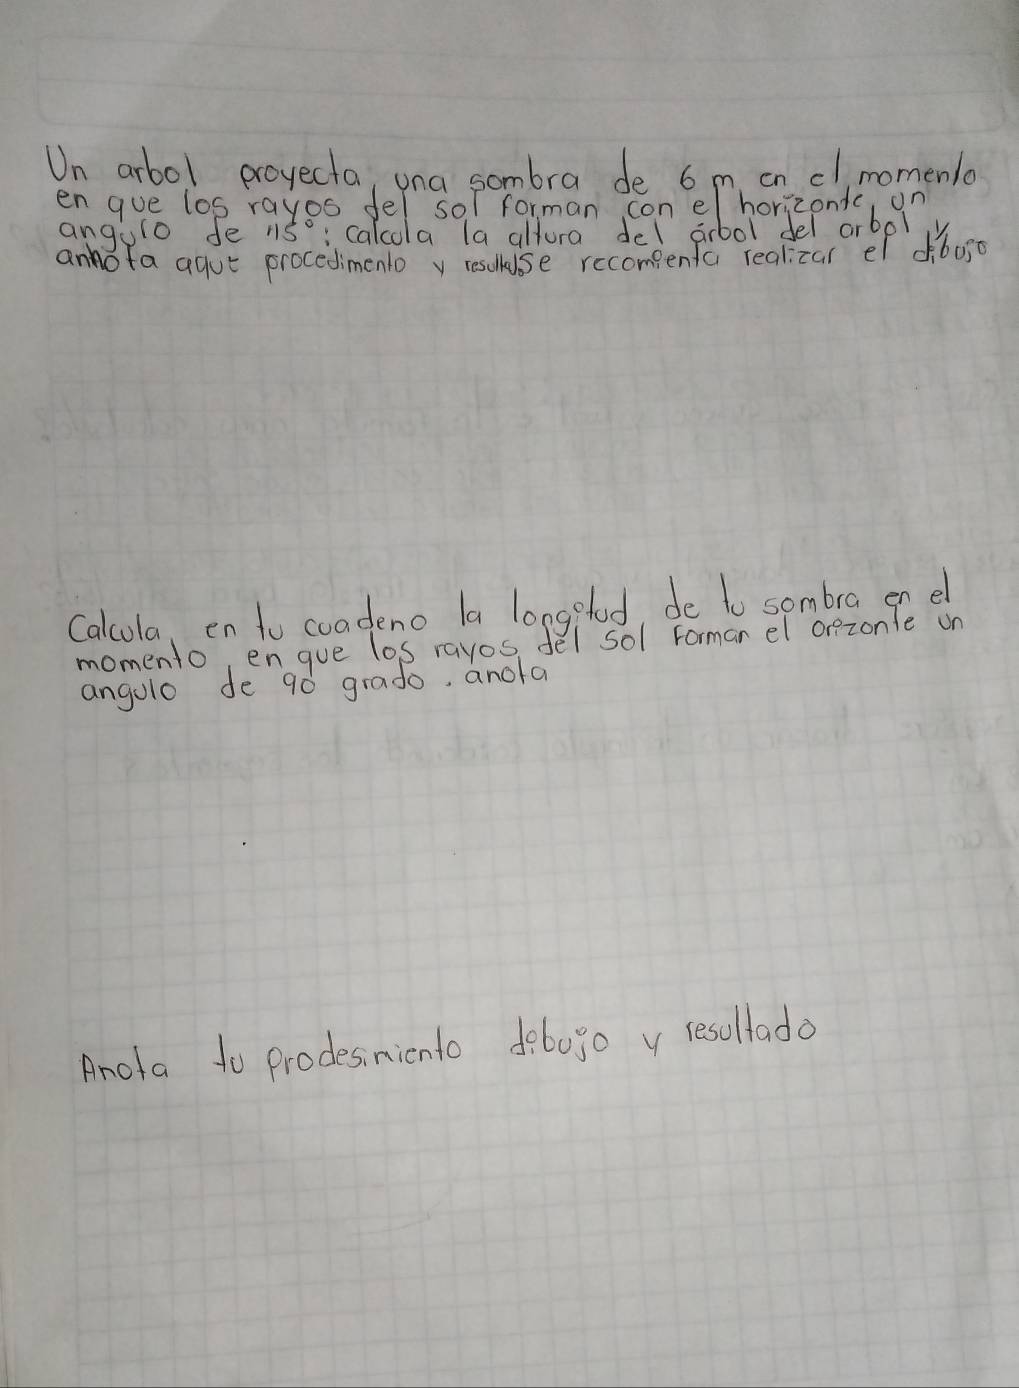 Un arbol proyecta, una sombra de 6 m, en el, momento
en que los rayos del sol forman con el horizonte, un
angulo de 115°: calcola la altura del árbol del arbol y
annota aqui procedimento y resultado Se recomienta realizar el dibujo
Calcula, en tu cuadeno la longitud, de tu sombra en el
momento, en que los rayos, del sol Forman el orizonte un
angulo de 90 grado. anota
Anota tu prodesimiento dibujo y resultado